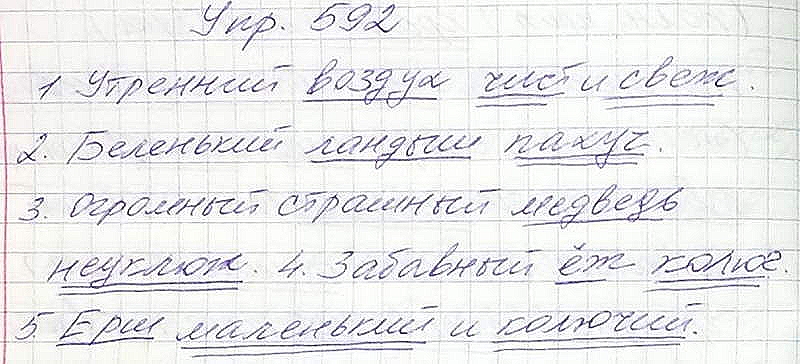 Упр. 592
1 Утренний воздух чист и свеж.
2. Беленький ландыш пахуч.
3. Огромный страшный медведь
неуклюж. 4. Забавный ёж колюч.
5. Ерш маленький и колючий.